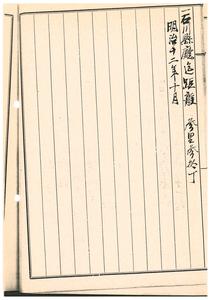 一石川縣廳迄距離 参里参拾丁
明治十二年十月